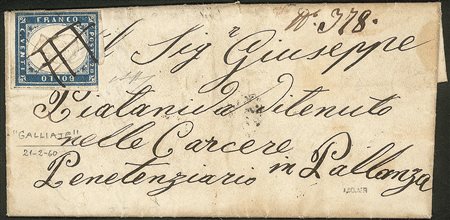 FRANCO
POSTE 20
BOLLO
C. VENTI
N° 378.
Al Sig. Giuseppe
Pialanid Ditenuto
"GALLIATE"
21-2-60
nelle Carcere
Penetenziario in Pallanza